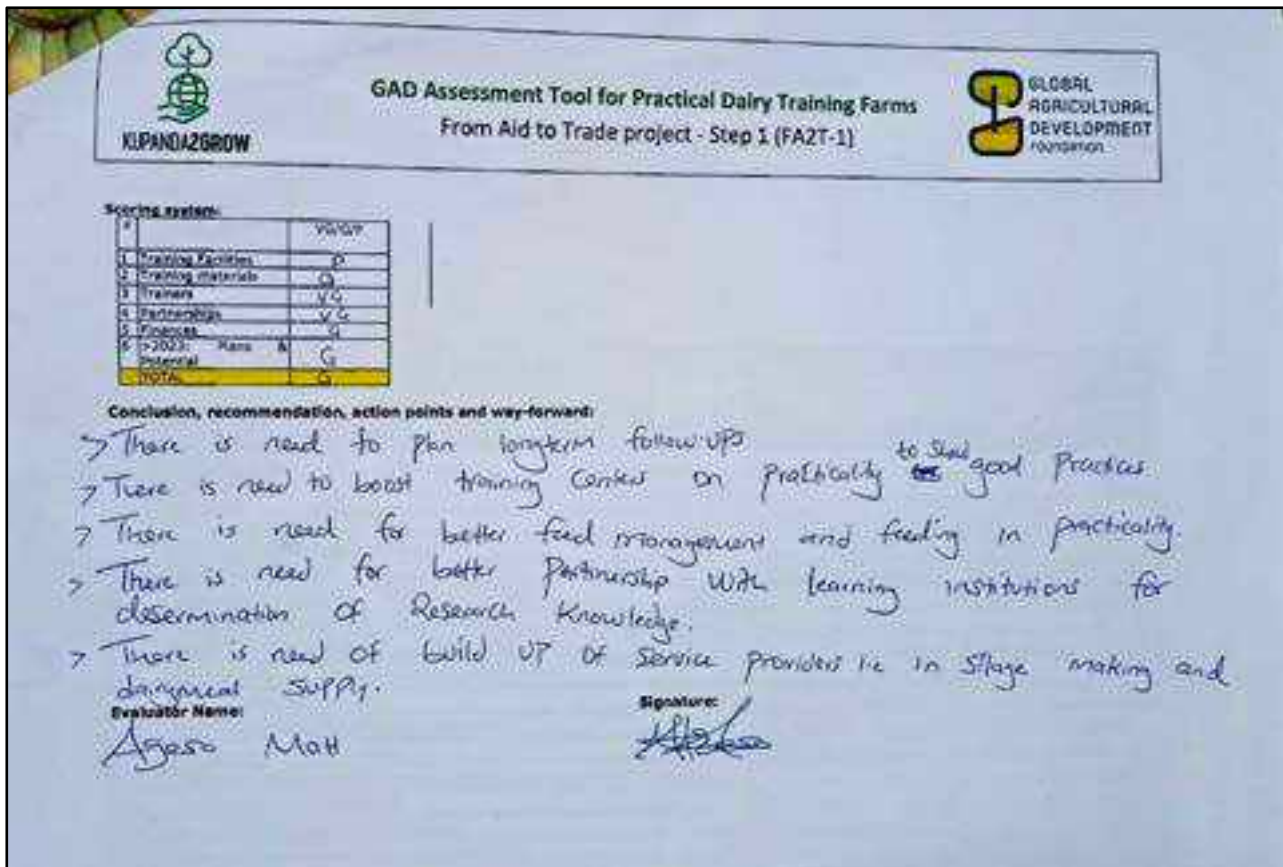 KUPANDA2GROW
GAD Assessment Tool for Practical Dairy Training Farms
From Aid to Trade project - Step 1 (FA2T-1)
GLOBAL
AGRICULTURAL
DEVELOPMENT
FOUNDATION
Scoring system:
# VG/G/P
1 Training Facilities P
2 Training materials G
3 Trainers VG
4 Partnerships VG
5 Finances G
6 >2023: Plans &
Potential G
TOTAL G
Conclusion, recommendation, action points and way-forward:
> There is need to plan longterm follow-ups
> There is need to boost training Centers on practicality to good Practices
> There is need for better feed management and feeding in practicality.
> There is need for better Partinership with learning institutions for
desermination of Research Knowledge.
> There is need of build up of Service providers i.e in Silage making and
supply.
Evaluator Name: Signature:
Agoso Matt